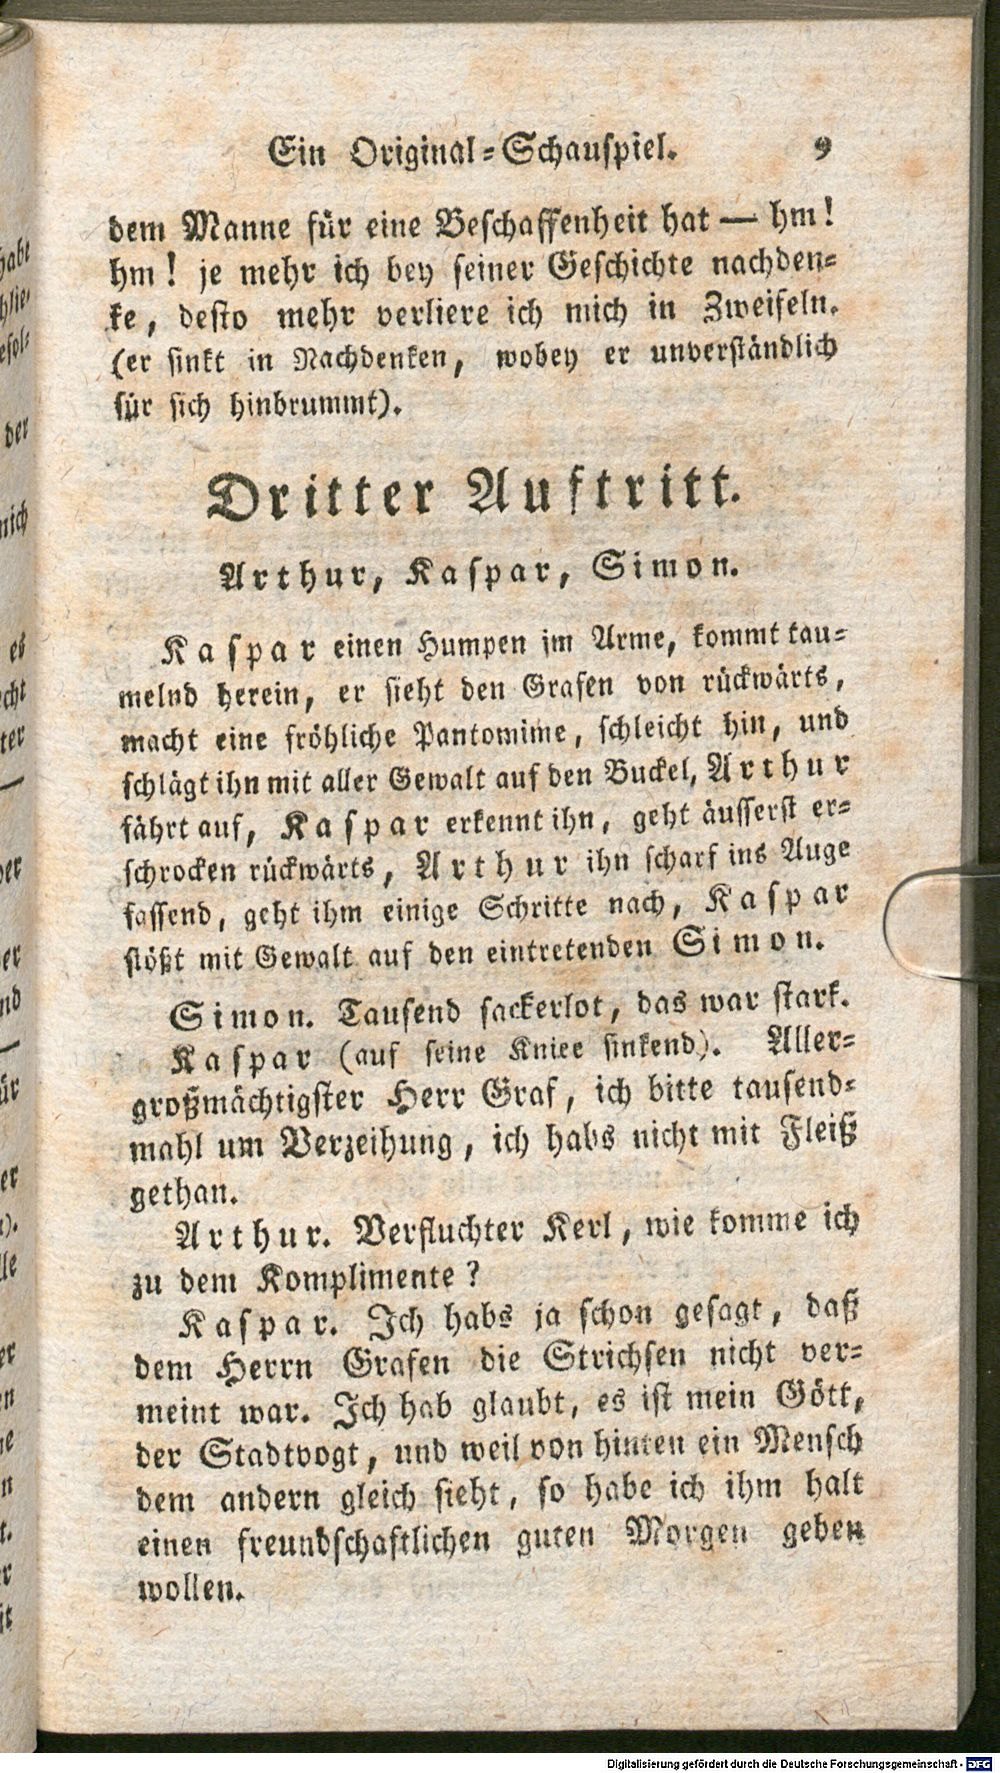 Ein Original-Schauspiel. 9
dem Manne für eine Beschaffenheit hat — hm!
hm! je mehr ich bey seiner Geschichte nachden-
ke, desto mehr verliere ich mich in Zweifeln.
(er sinkt in Nachdenken, wobey er unverständlich
für sich hinbrummt).
Dritter Auftritt.
Arthur, Kaspar, Simon.
Kaspar einen Humpen im Arme, kommt tau-
melnd herein, er sieht den Grafen von rückwärts,
macht eine fröhliche Pantomime, schleicht hin, und
schlägt ihn mit aller Gewalt auf den Buckel, Arthur
fährt auf, Kaspar erkennt ihn, geht äusserst er-
schrocken rückwärts, Arthur ihn scharf ins Auge
fassend, geht ihm einige Schritte nach, Kaspar
stößt mit Gewalt auf den eintretenden Simon.
Simon. Tausend sackerlot, das war stark.
Kaspar (auf seine Kniee sinkend). Aller-
großmächtigster Herr Graf, ich bitte tausend-
mahl um Verzeihung, ich habs nicht mit Fleiß
gethan.
Arthur. Verfluchter Kerl, wie komme ich
zu dem Komplimente?
Kaspar. Ich habs ja schon gesagt, daß
dem Herrn Grafen die Strichsen nicht ver-
meint war. Ich hab glaubt, es ist mein Gött,
der Stadtvogt, und weil von hinten ein Mensch
dem andern gleich sieht, so habe ich ihm halt
einen freundschaftlichen guten Morgen geben
wollen.
Digitalisierung gefördert durch die Deutsche Forschungsgemeinschaft - DFG